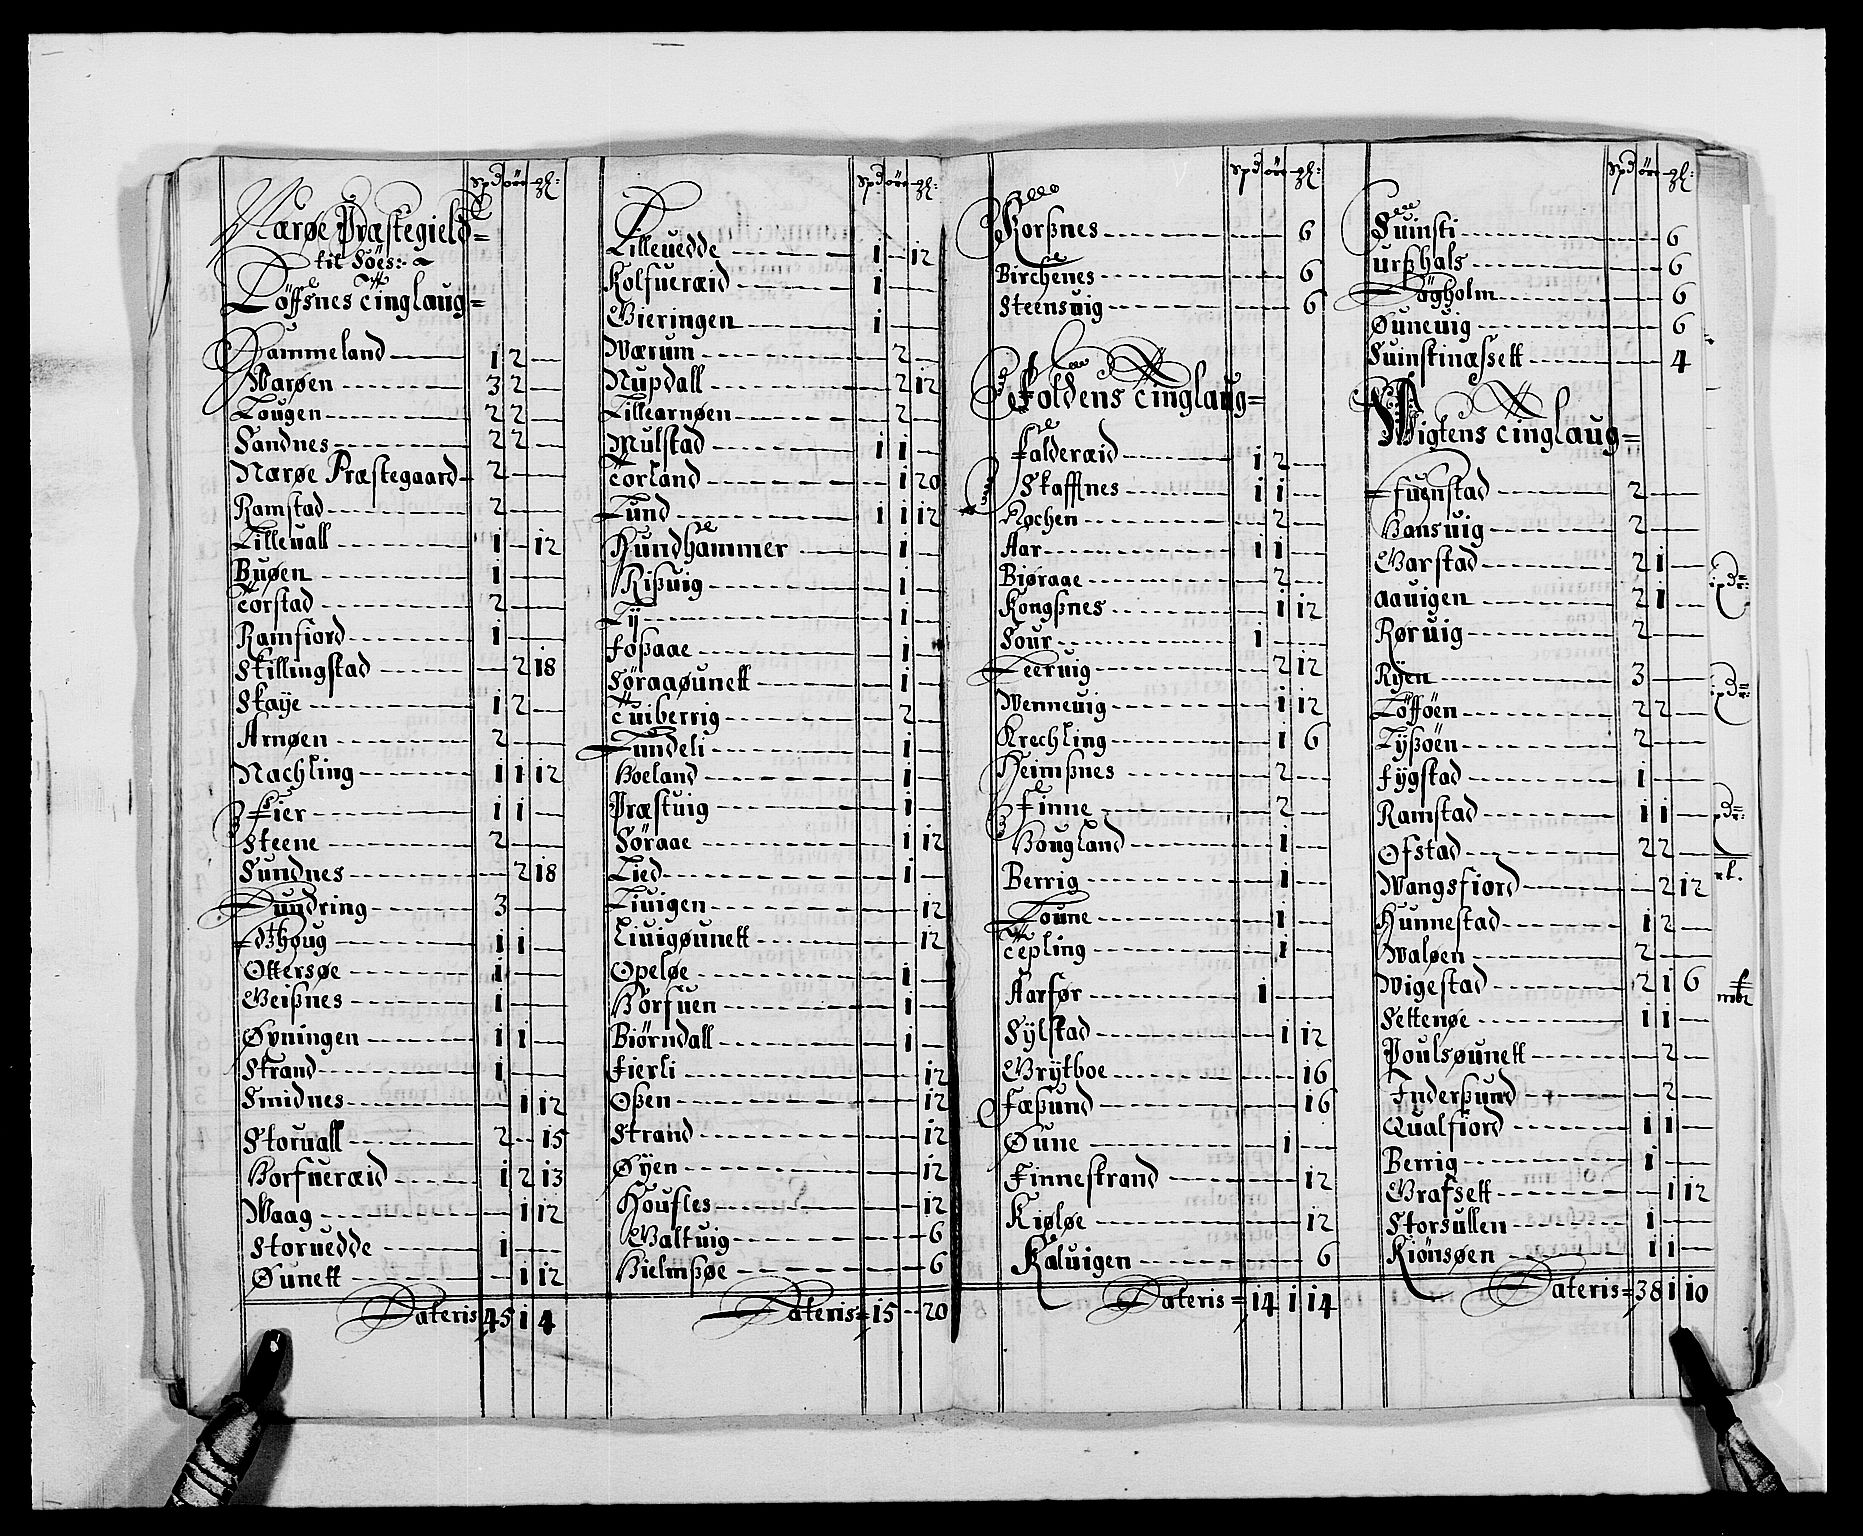 Spd øre gl:
Nærøe Præstegield=
til Søes:
Löffsnes tinglaug=
Hammeland 1 2 —
Warøen 3 2 —
Lougen 2 2 —
Sandnes 2 2 —
Nærøe Præstegaard 2 — —
Ramstad 2 — —
Lilleuall 1 — 12
Buøen 1 — —
Torstad 2 — —
Ramfiord 1 — —
Skillingstad — 2 18
Skaye 1 2 —
Arnøen 2 — —
Nachling 1 1 12
Fier 1 1 —
Steene 2 — —
Sundnes — 2 18
Lundring 3 — —
Edtzhoug 1 1 —
Ottersøe 1 — —
Geißnes 1 — —
Øvningen 1 1 —
Strand 1 — —
Smidnes — 1 12
Storuall 2 — 15
Horfueræid 1 2 13
Waag — 1 12
Storuedde 1 — —
Øunett — 1 12
Lateris 45 1 4
Spd øre gl:
Lilleuedde 1 — 12
Kolfueræid 1 — —
Gieringen 1 — —
Wærum — 2 —
Nupdall — 2 12
Lillearnøen — 2 —
Mulstad 1 1 —
Torland — 1 20
Lund 1 1 12
Hundhammer — 1 —
Rißuig — 1 —
Ly — 1 —
Foßaae — 1 —
Søraaøunett — 1 —
Tuiberrig — 2 —
Lundeli — 1 —
Hoeland — 1 —
Præstuig — 1 —
Søraae — 1 12
Lied — 1 —
Liuigen — — 12
Liuigøunett — — 12
Opeløe — 1 —
Horfuen — 1 —
Biørndall — 1 —
Fierli — — 12
Oßen — — 12
Strand — — 12
Øyen — — 12
Houfles — — 12
Galtuig — — 6
Hielmßøe — — 6
Lateris= 15 — 20
Spd øre gl:
Korßnes — — 6
Birchenes — — 6
Steensuig — — 6
Foldens tinglaug=
Falderæid 1 2 —
Skaffnes 1 1 —
Nøchen — 2 —
Aar 1 1 —
Biøraae — 2 —
Kongßnes — 1 12
Sour 1 — —
Leeruig — 2 12
Wenneuig — 1 12
Krechling — 1 6
Heimßnes — 2 —
Finne — 2 —
Hougland — 1 —
Berrig — 1 —
Loune — 1 —
Tepling — 1 —
Aarfør 1 — —
Sylstad — 1 12
Grytboe — — 16
Fæßund — — 16
Øune — 1 —
Finnestrand — — 12
Kiøløe — — 12
Kaluigen — — 6
Lateris= 14 1 14
Spd øre gl:
Suinsti — — 6
Urßhals — — 6
Dagholm — — 6
Øuneuig — — 6
Suinstinæssett — — 4
Wigtens tinglaug=
Fuenstad 2 — —
Hansuig 2 — —
Garstad 2 1 —
Aauigen 2 1 —
Røruig 2 — —
Ryen 3 — —
Löfföen 2 2 —
Lyßöen 2 — —
Fygstad 1 — —
Ramstad 1 1 —
Ofstad 2 2 —
Wangsfiord — 2 12
Hunnestad 1 2 —
Waløen 2 — —
Wigestad 2 1 6
Settenøe 1 1 —
Poulsøunett — 2 —
Inderßund — 2 —
Qualfiord 1 1 —
Berrig 1 — —
Grafsett — 1 12
Storsullen 1 — —
Kiönsøen 1 1 —
Lateris= 38 1 10